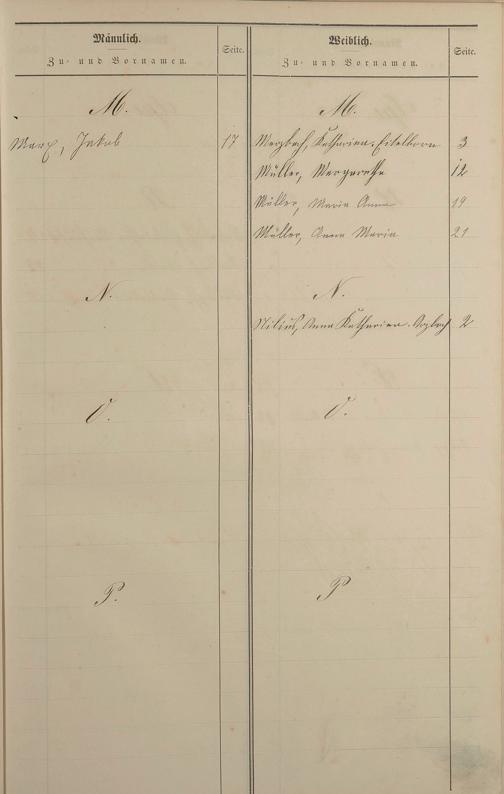 Männlich.
Zu- und Vornamen.
Seite.
M.
Marx, Jakob 17
N.
O.
P.
Weiblich.
Zu- und Vornamen.
Seite.
M.
Merzbach, Katharina. Eitelborn 3
Müller, Margaretha 12
Müller, Maria Anna 19
Müller, Anna Maria 21
N.
Nilius, Anna Katharina. 2
O.
P